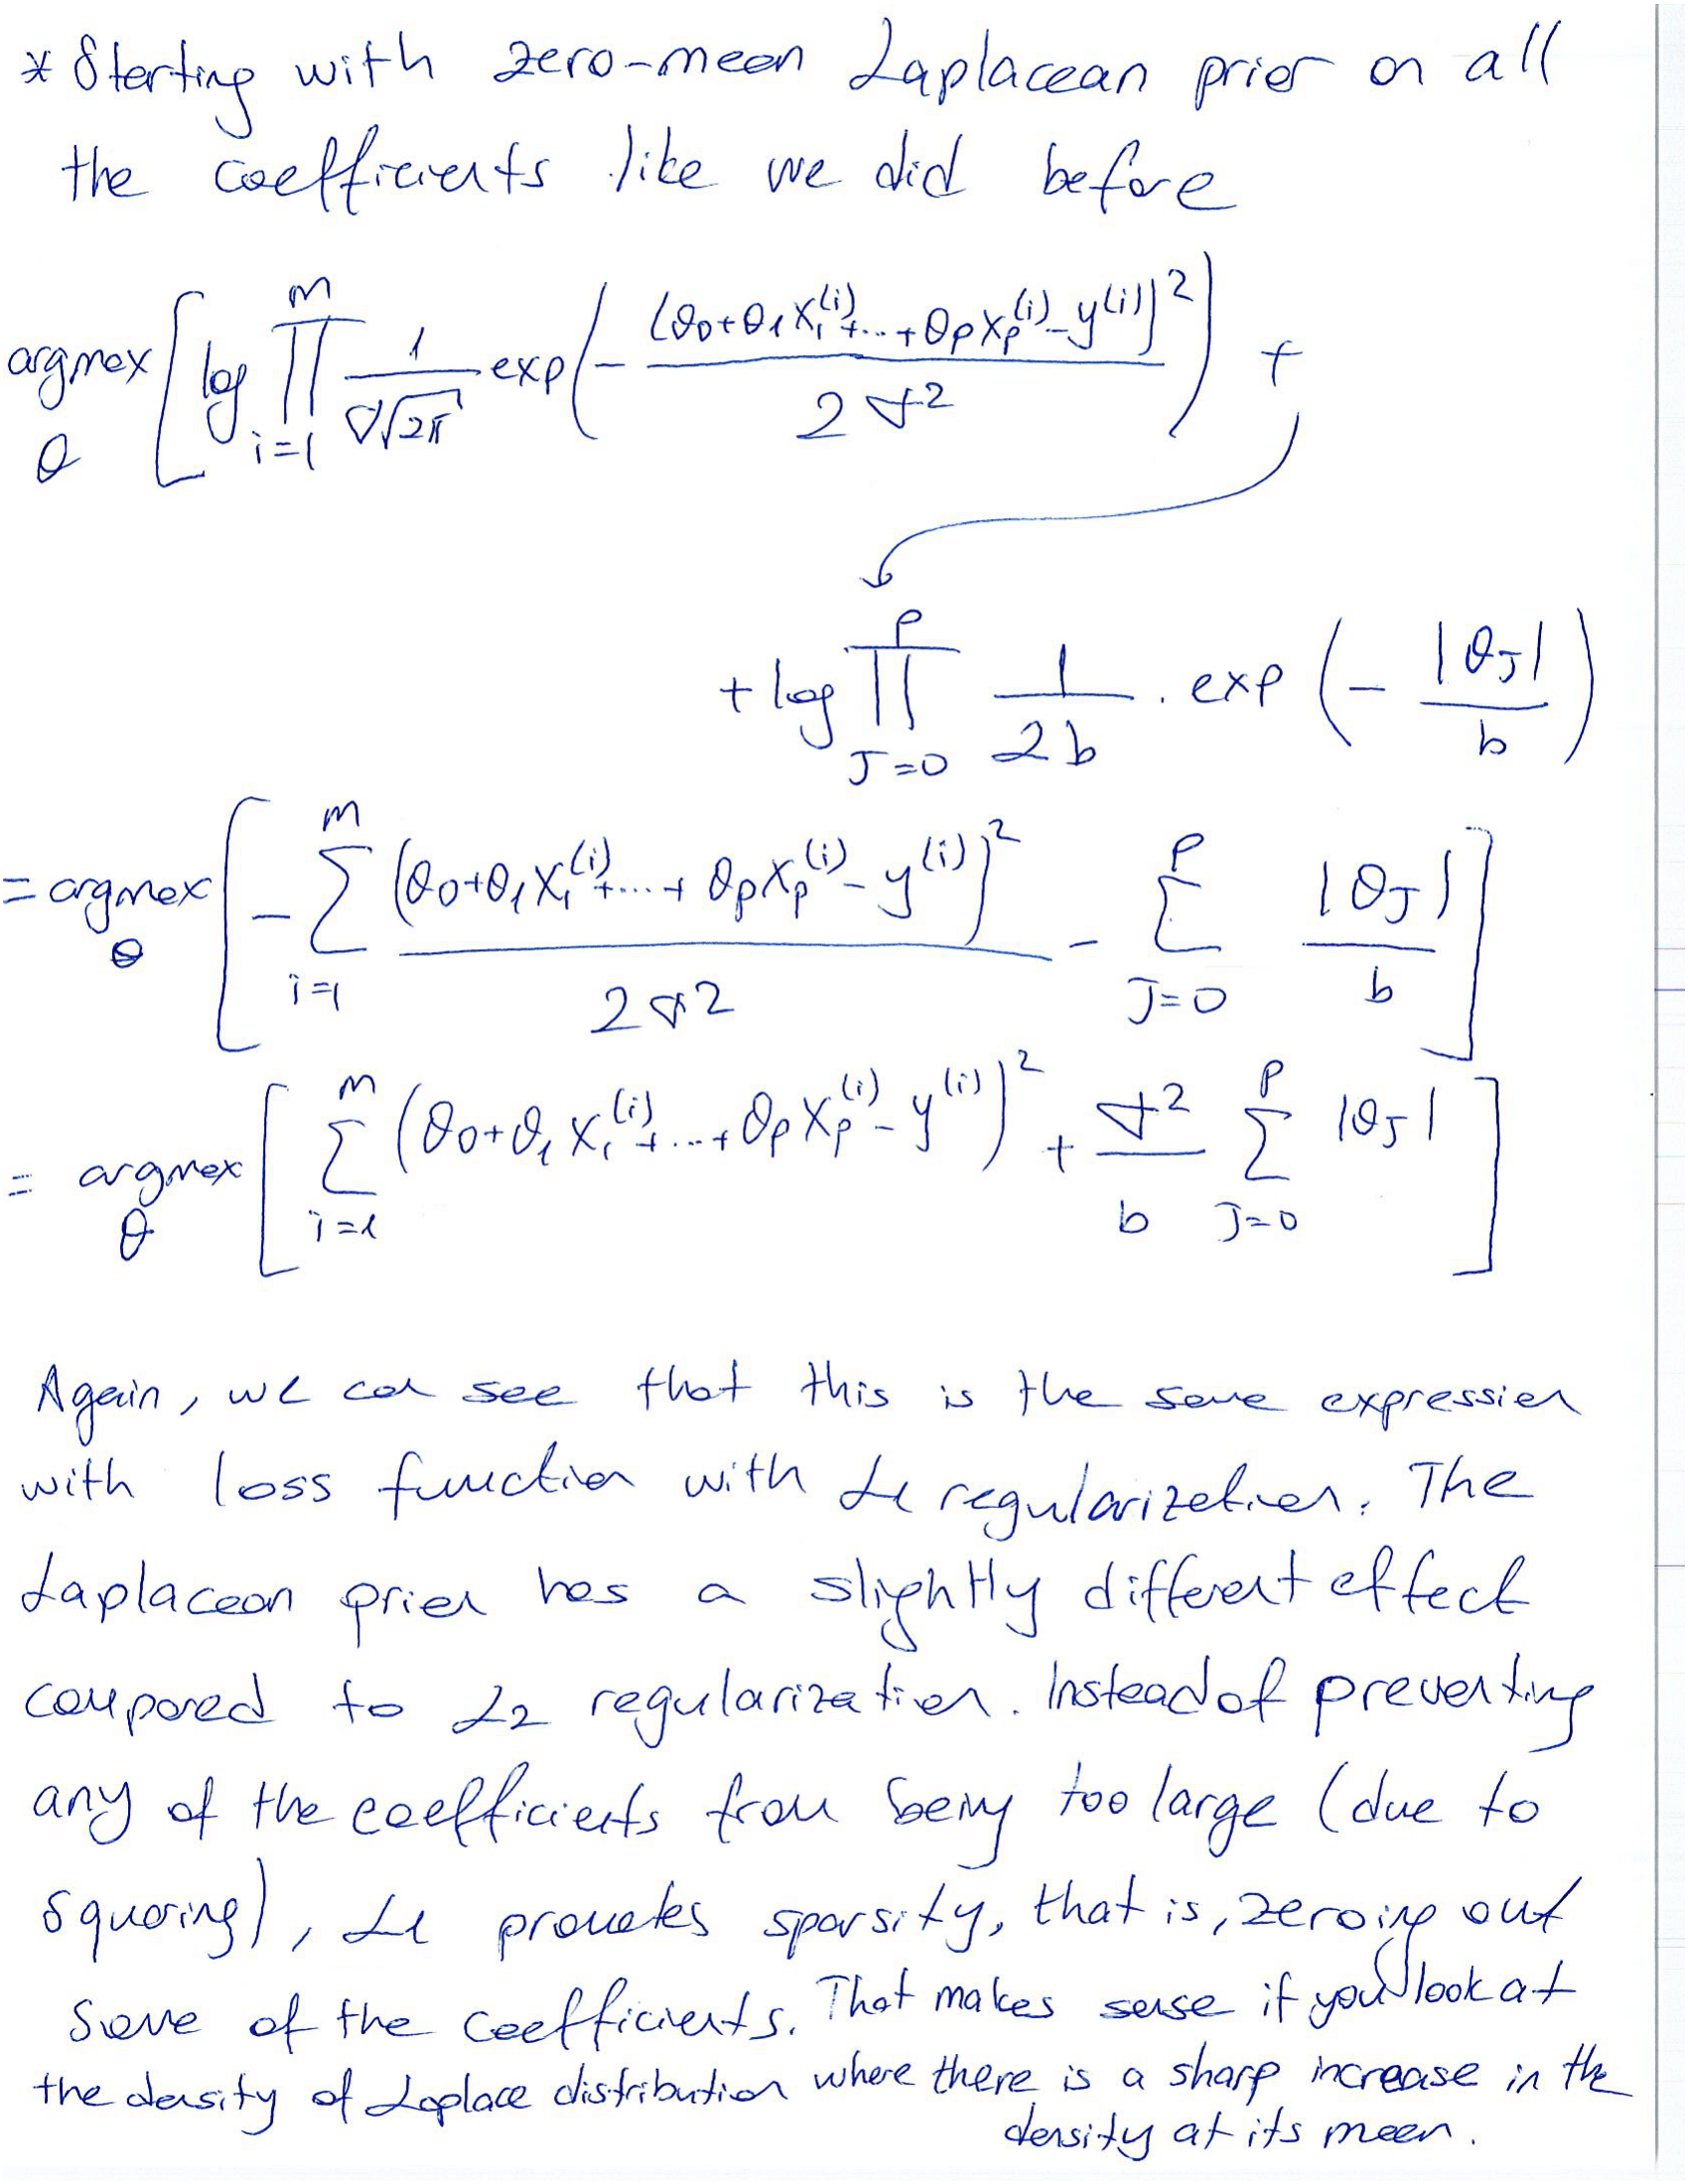 * Starting with zero-mean Laplacean prior on all
the coefficients like we did before
argmax_θ [ log ∏_{i=1}^{m} 1/(σ√2π) exp( - (θ₀+θ₁x₁^(i)+...+θₚxₚ^(i)-y^(i))² / 2σ² ) +
+ log ∏_{J=0}^{P} 1/2b . exp ( - |θ_J| / b )
= argmax_θ [ - ∑_{i=1}^{m} (θ₀+θ₁x₁^(i)+....+θₚxₚ^(i)-y^(i))² / 2σ² - ∑_{J=0}^{P} |θ_J| / b ]
= argmax_θ [ ∑_{i=1}^{m} (θ₀+θ₁x₁^(i)+...+θₚxₚ^(i)-y^(i))² + σ²/b ∑_{J=0}^{P} |θ_J| ]
Again, we can see that this is the same expression
with loss function with L1 regularization. The
Laplacean prior has a slightly different effect
compared to L2 regularization. Instead of preventing
any of the coefficients from being too large (due to
squaring), L1 promotes sparsity, that is, zeroing out
some of the coefficients. That makes sense if you look at
the density of Laplace distribution where there is a sharp increase in the
density at its mean.